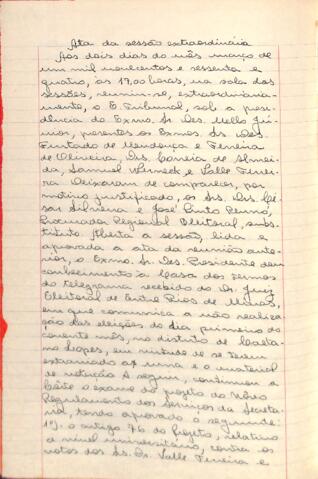 Ata da sessão extraordinária
Aos dois dias do mês março de
um mil novecentos e sessenta e
quatro, às 17,00 horas, na sala das
sessões, reuniu-se, extraordinaria-
mente, o E. Tribunal, sob a presi-
dência do Exmo. Sr. Des. Mello Jú-
nior, presentes os Exmos. Srs. Des.
Furtado de Mendonça e Ferreira
de Oliveira, Drs. Correia de Almei-
da, Samuel Werneck e Valle Ferrei-
ra. Deixaram de comparecer, por
motivo justificado, os Srs. Drs. Cé-
sar Silveira e José Pinto Renno,
Procurador Regional Eleitoral, subs-
tituto. Aberta a sessão, lida e
aprovada a ata da reunião ante-
rior, o Exmo. Sr. Des. Presidente deu
conhecimento à Casa dos termos
do telegrama recebido do Dr. Juiz
Eleitoral de Entre Rios de Minas,
em que comunica a não realiza-
ção das eleições do dia primeiro do
corrente mês, no distrito de Caeta-
no Lopes, em virtude de se terem
extraviado a urna e o material
de votação. A seguir, continuou a
Côrte o exame do projeto do Nôvo
Regulamento dos Serviços da Secreta-
ria, tendo aprovado o seguinte:
1º). o artigo 76 do projeto, relativo
a nível universitário, contra os
votos dos Srs. Dr. Valle Ferreira e